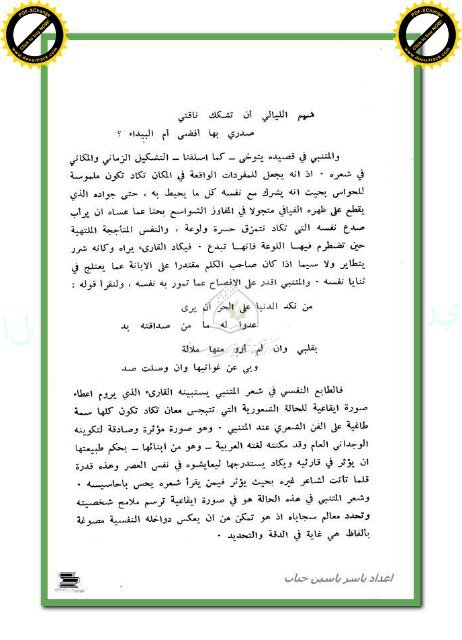 شيم الليالي أن تشكك ناقتي
صدري بها أفضى أم البيداء ؟
والمتنبي في قصيده يتوخى ــ كما أسلفنا ــ التشكيل الزماني والمكاني
في شعره ٠ اذ انه يجعل للمفردات الواقعة في المكان تكاد تكون ملموسة
للحواس بحيث انه يشرك مع نفسه كل ما يحيط به ، حتى جواده الذي
يقطع على ظهره الفيافي متجولا في المفاوز الشواسع بحثا عما عساه ان يرأب
صدع نفسه التي تكاد تتمزق حسرة ولوعة ، والنفس المتأججة الملتهبة
حين تضطرم فيهـا اللوعة فانهـا تبدع ٠ فيكاد القارىء يراه وكانه شرر
يتطاير ولا سيما اذا كان صاحب الكلم مقتدرا على الابانة عما يعتلج في
ثنايا نفسه ٠ والمتنبي اقدر على الافصاح عما تمور به نفسه ، ولنقرأ قوله :
من نكد الدنيا على الحر أن يرى
عدوا له ما من صداقته بد
بقلبي وان لم أرو منها ملالة
وبي عن غوانيها وان وصلت صد
فالطابع النفسي في شعر المتنبي يستبينه القارىء الذي يروم اعطاء
صورة ايقاعية للحالة الشعورية التي تتبجس معان تكاد تكون كلها سمة
طاغية على الفن الشعري عند المتنبي ٠ وهو صورة مؤثرة وصادقة لتكوينه
الوجداني العام وقد مكنته لغته العربية ــ وهو من ابنائها ــ بحكم طبيعتها
ان يؤثر في قارئيه ويكاد يستدرجها ليعايشوه في نفس العصر وهذه قدرة
قلما تأتت لشاعر غيره بحيث يؤثر فيمن يقرأ شعره يحس باحاسيسه ٠
وشعر المتنبي في هذه الحالة هو في صورة ايقاعية ترسم ملامح شخصيته
وتحدد معالم سجاياه اذ هو تمكن من ان يعكس دواخله النفسية مصوغة
بألفاظ هي غاية في الدقة والتحديد ٠
اعداد ياسر ياسين حباب